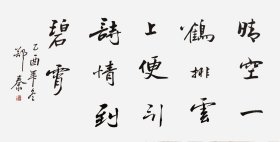 晴空一
鶴排雲
上便引
詩情到
碧霄
乙酉年冬
郑